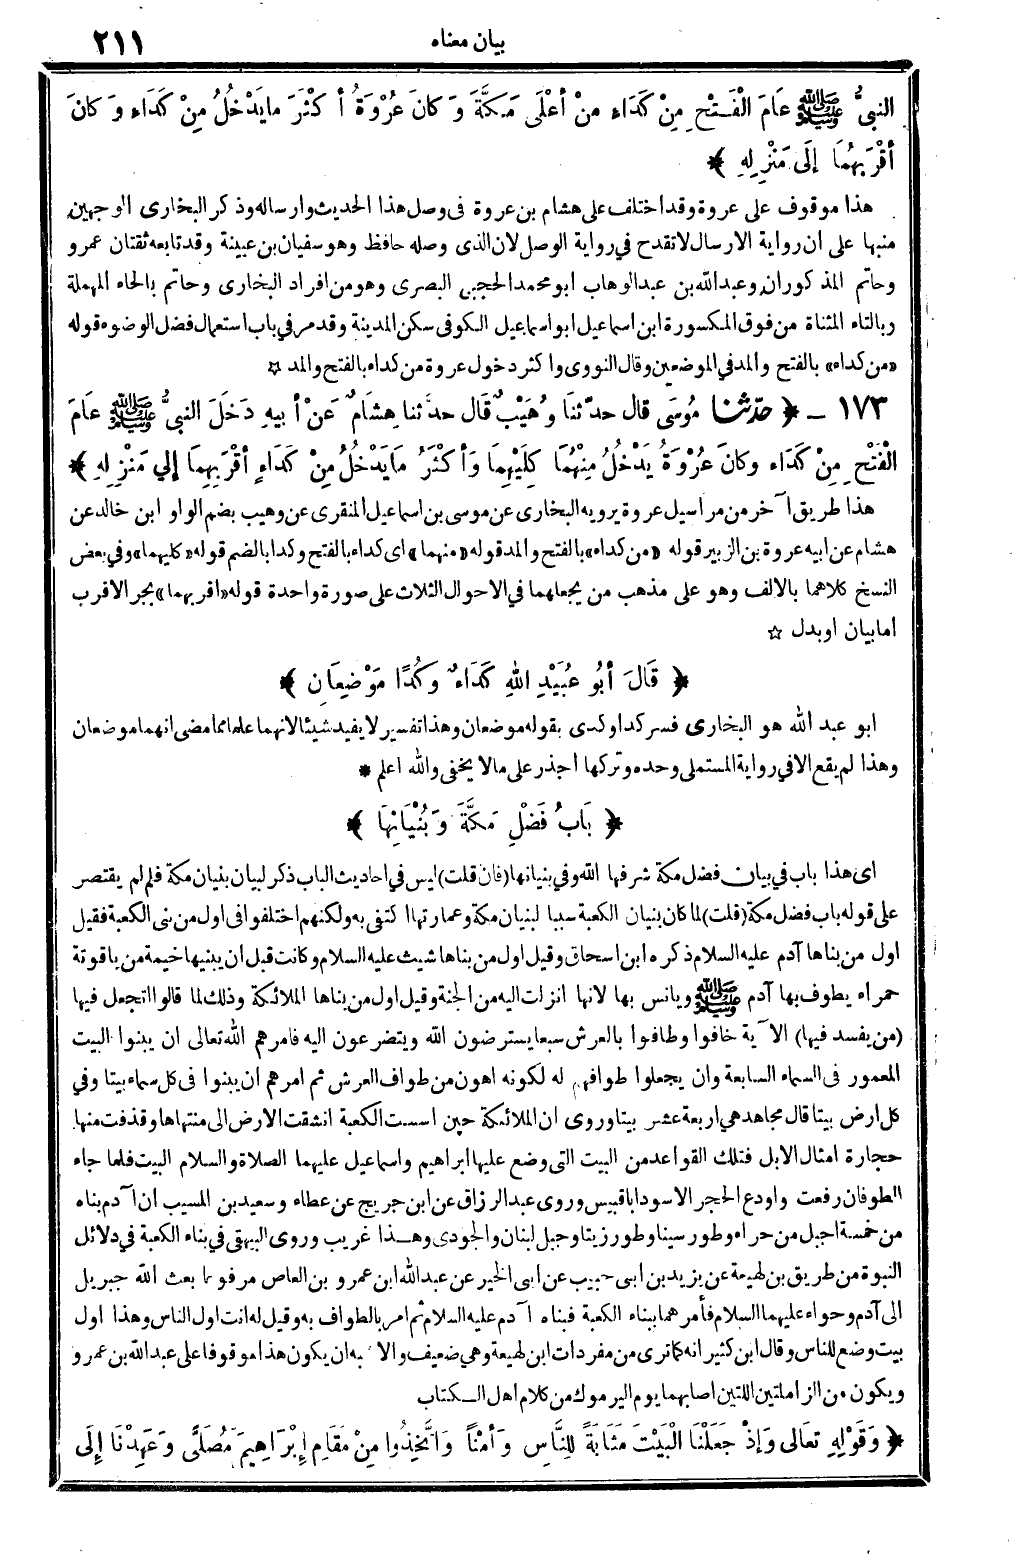 بيان معناه ٢١١
النبيُّ ﷺ عَامَ الْفَتْحِ مِنْ كَدَاءٍ مِنْ أعْلَى مَكَّةَ وَكانَ عُرْوَةُ أكْثَرَ مايَدْخُلُ مِنْ كَدَاءٍ وَكانَ
أقْرَبَهُمَا إلَى مَنْزِلِهِ ﴾
هذا موقوف على عروة وقد اختلف على هشام بن عروة فى وصل هذا الحديث وارساله وذكر البخارى الوجهين
منبها على ان رواية الارسال لاتقدح في رواية الوصل لان الذى وصله حافظ وهو سفيان بن عيينة وقد تابعه ثقتان عمرو
وحاتم المذكوران وعبدالله بن عبدالوهاب ابو محمد الحجبى البصرى وهو من افراد البخارى وحاتم بالحاء المهملة
وبالتاء المثناة من فوق المكسورة ابن اسماعيل ابو اسماعيل الكوفى سكن المدينة وقد مر في باب استعمال فضل الوضوء قوله
«من كداء» بالفتح والمد في الموضعين وقال النووى واكثر دخول عروة من كداء بالفتح والمد ☆
١٧٣ ـ ﴿ حدّثنا مُوسَى قال حدّثنَا وُهَيْبٌ قَال حدّثنا هِشَامٌ عَنْ أبيهِ دَخَلَ النبيُّ ﷺ عَامَ
الْفَتْحِ مِنْ كَدَاءٍ وكانَ عُرْوَةُ يَدْخُلُ مِنْهُمَا كِلَيْهِمَا وَأكْثَرُ مَايَدْخُلُ مِنْ كَدَاءٍ أقْرَبِهِمَا إلي مَنْزِلِهِ ﴾
هذا طريق آخر من مراسيل عروة يرويه البخارى عن موسى بن اسماعيل المنقرى عن وهيب بضم الواو ابن خالد عن
هشام عن ابيه عروة بن الزبير قوله «من كداء» بالفتح والمد قوله «منهما» اى كداء بالفتح وكدا بالضم قوله «كليهما» وفي بعض
النسخ كلاهما بالالف وهو على مذهب من يجعلهما في الاحوال الثلاث على صورة واحدة قوله «اقربهما» بجر الاقرب
اما بيان او بدل ☆
﴿ قَالَ أبُو عُبَيْدِ اللهِ كَدَاءٌ وَكُدًا مَوْضِعَانِ ﴾
ابو عبد الله هو البخارى فسر كدا وكدى بقوله موضعان وهذا تفسير لا يفيد شيئا لانهما علما مما مضى انهما موضعان
وهذا لم يقع الا في رواية المستملى وحده وتركها اجذر على مالا يخفى والله اعلم *
﴿ بَابُ فَضْلِ مَكَّةَ وَبُنْيَانِهَا ﴾
اى هذا باب في بيان فضل مكة شرفها الله وفي بنيانها (فان قلت) ليس في احاديث الباب ذكر لبيان بنيان مكة فلم لم يقتصر
على قوله باب فضل مكة (قلت) لما كان بنيان الكعبة سببا لبنيان مكة وعمارتها اكتفى به ولكنهم اختلفوا فى اول من بنى الكعبة فقيل
اول من بناها آدم عليه السلام ذكره ابن اسحاق وقيل اول من بناها شيث عليه السلام وكانت قبل ان يبنيها خيمة من ياقوتة
حمراء يطوف بها آدم ﷺ ويانس بها لانها انزلت اليه من الجنة وقيل اول من بناها الملائكة وذلك لما قالوا اتجعل فيها
(من يفسد فيها) الآية خافوا وطافوا بالعرش سبعا يسترضون الله ويتضرعون اليه فامرهم الله تعالى ان يبنوا البيت
المعمور فى السماء السابعة وان يجعلوا طوافهم له لكونه اهون من طواف العرش ثم امرهم ان يبنوا فى كل سماء بيتا وفي
كل ارض بيتا قال مجاهد هي اربعة عشر بيتا وروى ان الملائكة حين اسست الكعبة انشقت الارض الى منتهاها وقذفت منها
حجارة امثال الابل فتلك القواعد من البيت التى وضع عليها ابراهيم واسماعيل عليهما الصلاة والسلام البيت فلما جاء
الطوفان رفعت واودع الحجر الاسود اباقبيس وروى عبدالرزاق عن ابن جريج عن عطاء وسعيد بن المسيب ان آدم بناه
من خمسة اجبل من حراء وطور سينا وطور زيتا وجبل لبنان والجودى وهــذا غريب وروى البيهقى في بناء الكعبة في دلائل
النبوة من طريق بن لهيعة عن يزيد بن ابى حبيب عن ابى الخير عن عبدالله ابن عمرو بن العاص مرفوعا بعث الله جبريل
الى آدم وحواء عليهما السلام فأمرهما ببناء الكعبة فبناه آدم عليه السلام ثم امر بالطواف به وقيل له انت اول الناس وهذا اول
بيت وضع للناس وقال ابن كثير انه كما ترى من مفردات ابن لهيعة وهي ضعيف والا به ان يكون هذا موقوفا على عبدالله بن عمرو
ويكون من الزاملتين اللتين اصابهما يوم اليرموك من كلام اهل الــكتاب
﴿ وَقَوْلِهِ تَعَالى وَإذْ جَعَلْنَا الْبَيْتَ مَثَابَةً لِلنَّاسِ وَأمْنًا وَاتَّخِذُوا مِنْ مَقَامِ إبْرَاهِيمَ مُصَلًّى وَعَهِدْنَا إلَى